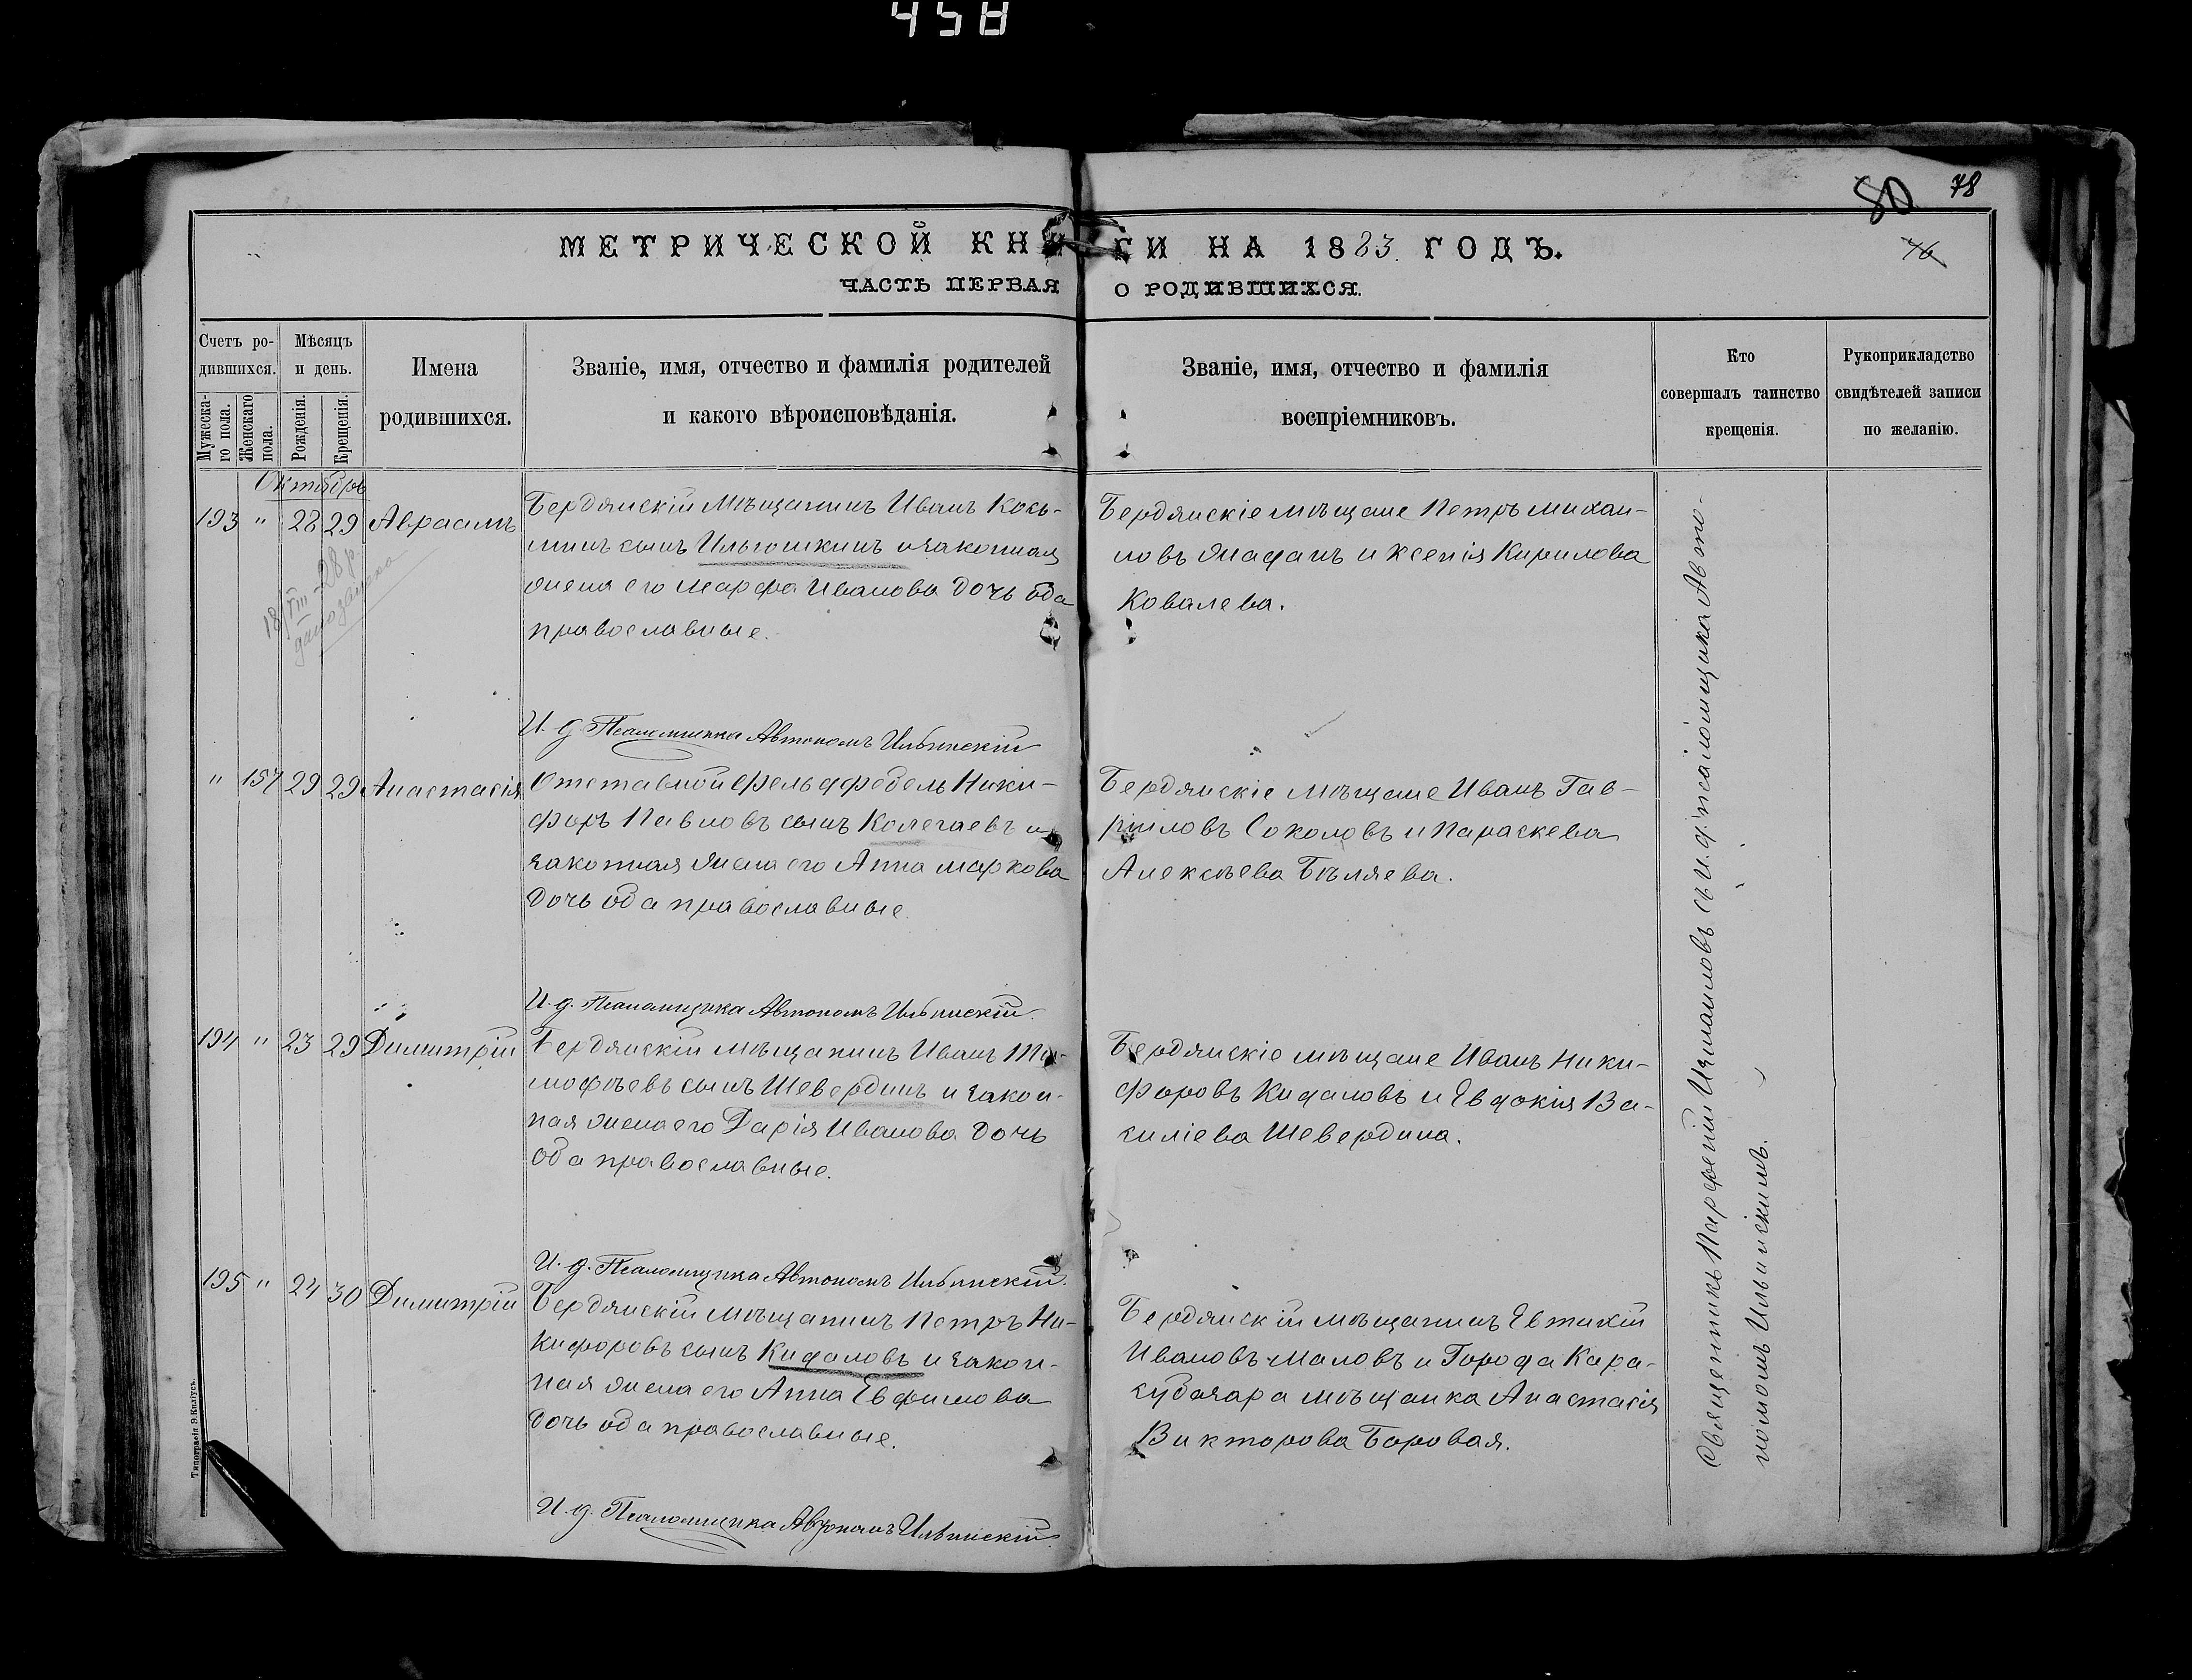 458
80
78
76
МЕТРИЧЕСКОЙ КНИГИ НА 1883 ГОДЪ.
ЧАСТЬ ПЕРВАЯ О РОДИВШИХСЯ.
Счетъ ро-
дившихся.
Мужеска-
го пола.
Женскаго
пола.
Мѣсяцъ
и день.
Рожденія.
Крещенія.
Имена
родившихся.
Званіе, имя, отчество и фамилія родителей
и какого вѣроисповѣданія.
Званіе, имя, отчество и фамилія
воспріемниковъ.
Кто
совершалъ таинство
крещенія.
Рукоприкладство
свидѣтелей записи
по желанію.
Октябрь
193 " 28 29 Авраамъ
Бердянскій Мѣщанинъ Иванъ Кось-
минъ сынъ Ильюшкинъ и законная
жена его Марфа Иванова дочь оба
православные.
Бердянскіе мѣщане Петръ Михаи-
ловъ и Ксенія Кирилова
Ковалева.
И. д. Псаломщика Автономъ Ильинскій
" 157 29 29 Анастасія
Отставной Фельдфебель Ники-
форъ Павловъ сынъ Колегаевъ и
законная жена его Анна Маркова
дочь оба православные
Бердянскіе мѣщане Иванъ Гав-
риловъ Соколовъ и Параскева
Алексѣева Бѣляева.
И. д. Псаломщика Автономъ Ильинскій.
194 " 23 29 Димитрій
Бердянскій мѣщанинъ Иванъ Ти-
мофѣевъ сынъ Шевердинъ и закон-
ная жена его Дарія Иванова дочь
оба православные.
Бердянскіе мѣщане Иванъ Ники-
форовъ Кидаловъ и Евдокія Ва-
силіева Шевердина.
И. д. Псаломщика Автономъ Ильинскій.
195 " 24 30 Димитрій
Бердянскій мѣщанинъ Петръ Ни-
кифоровъ сынъ Кидаловъ и закон-
ная жена его Анна Евфимова
дочь оба православные.
Бердянскій мѣщанинъ Евтихій
Ивановъ Маловъ и Города Кара-
субазара мѣщанка Анастасія
Викторова Боровая.
И. д. Псаломщика Автономъ Ильинскій
Священникъ Парфеній Измаиловъ съ И. д. псаломщика Авто-
номомъ Ильинскимъ.
Типографія Э. Килиусъ.